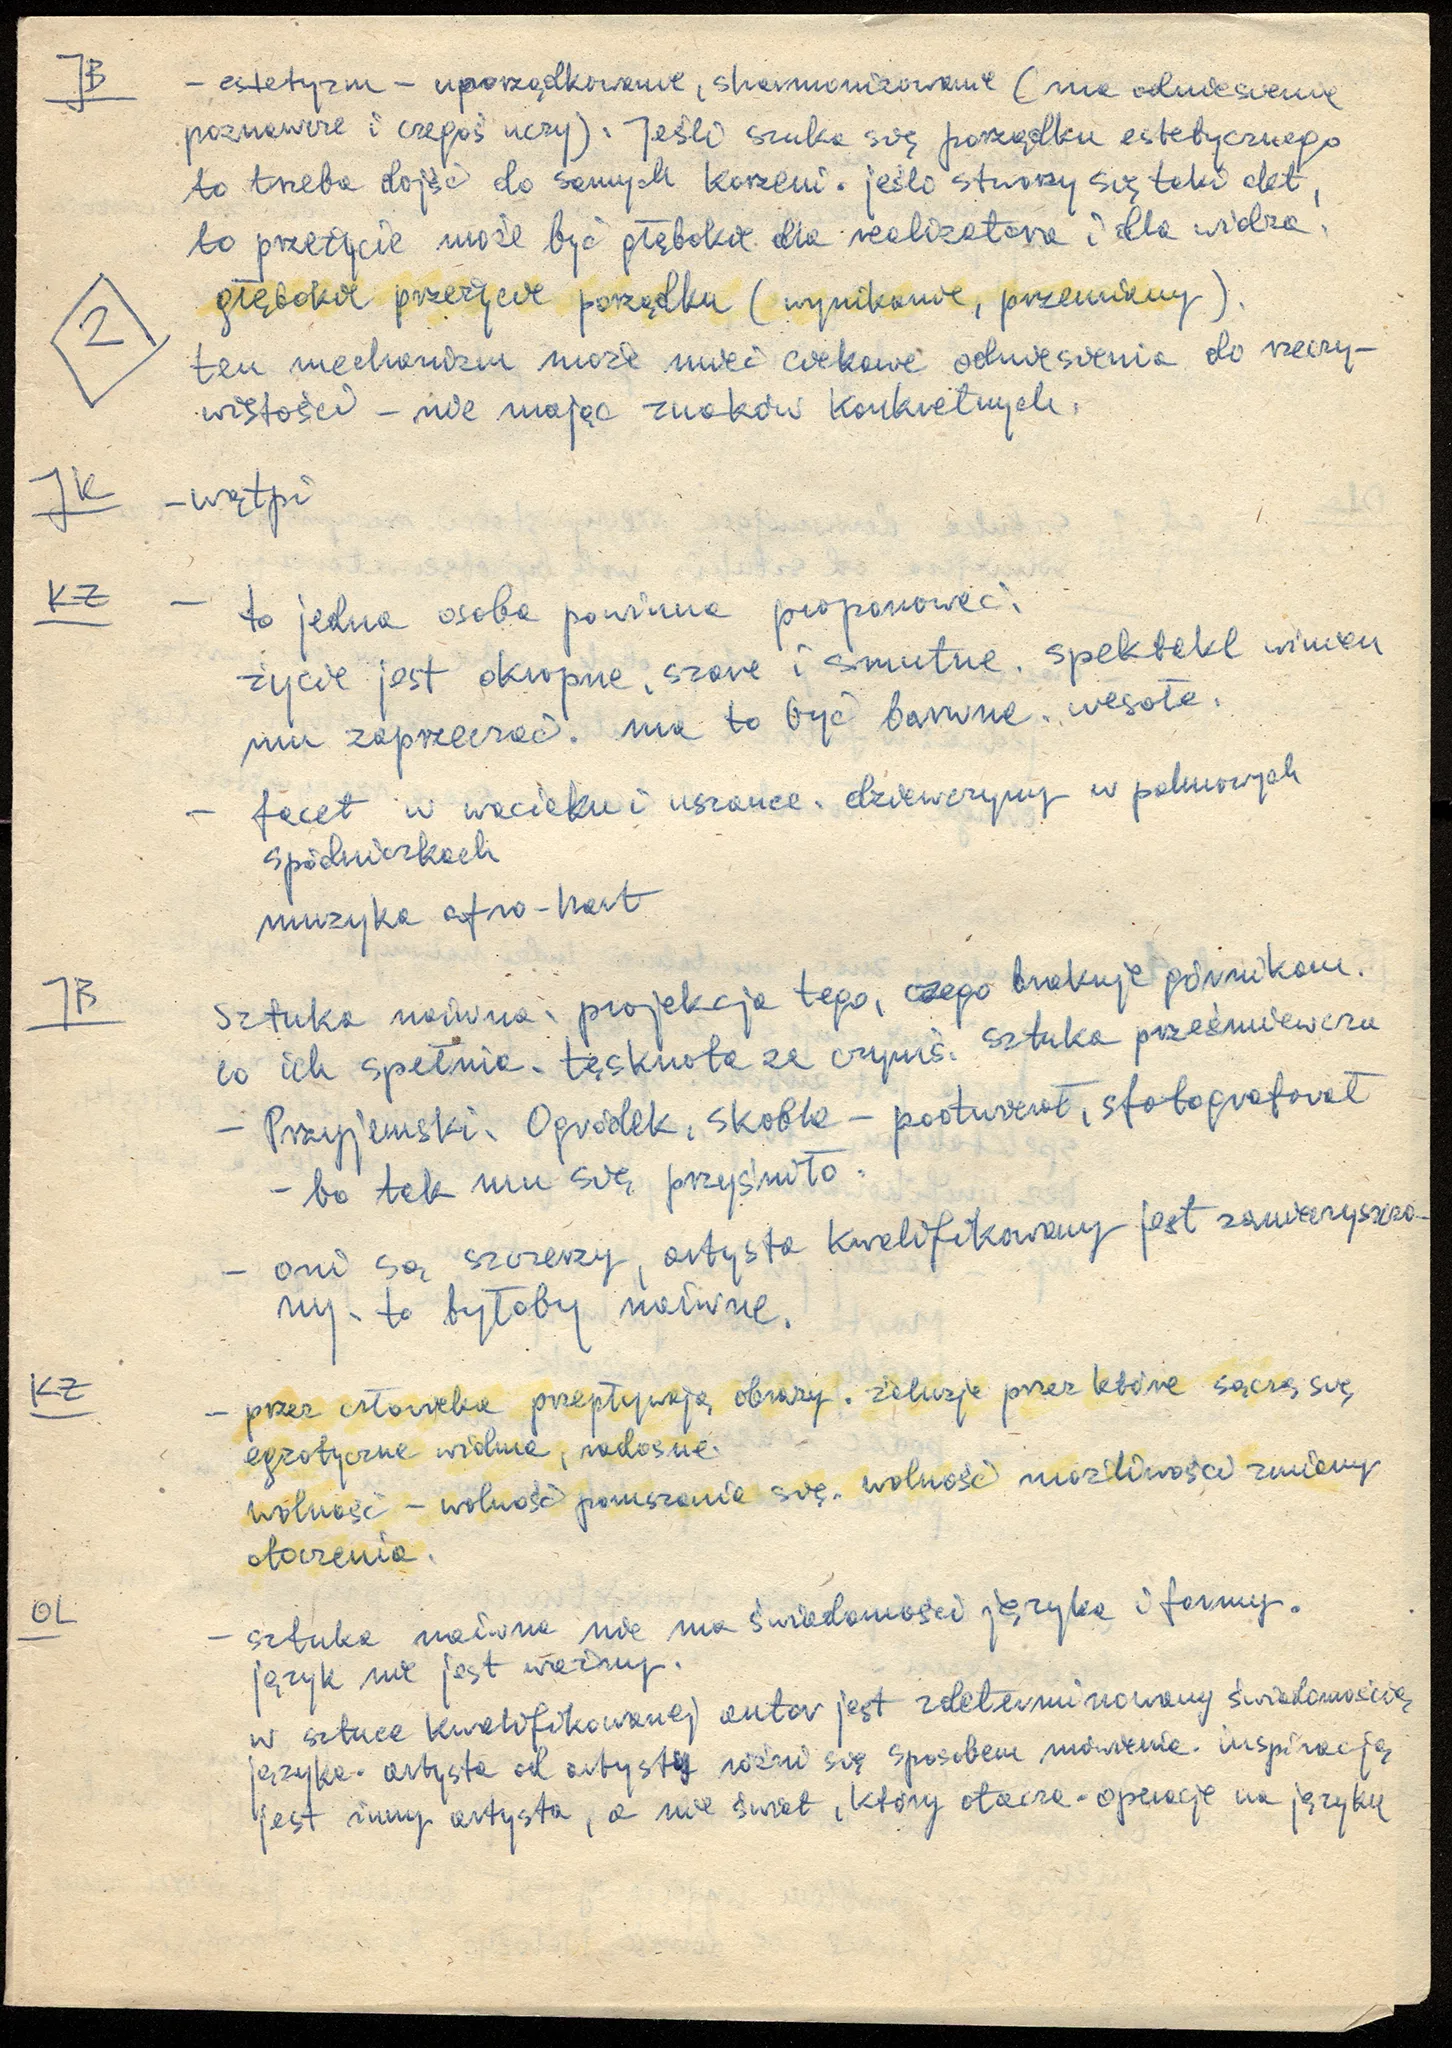 JB
- estetyzm - uporządkowanie, sharmonizowanie (ma odniesienie
poznawcze i czegoś uczy). Jeśli szuka się porządku estetycznego
to trzeba dojść do samych korzeni. jeśli stworzy się taki
to przeżycie może być głębokie dla realizatora i dla widza.
głębokie przeżycie porządku (wynikanie, przemiany).
2
ten mechanizm może mieć ciekawe odniesienia do rzeczy-
wistości - nie mając znaków konkretnych.
JK
- wątpi
KZ
- to jedna osoba powinna proponować.
życie jest okropne, szare i smutne. spektakl winien
mu zaprzeczać. ma to być barwne. wesołe.
- facet w waciaku i uszance. dziewczyny w palmowych
spódniczkach
muzyka afro-
JB
Sztuka naiwna. projekcja tego, czego brakuje górnikom.
co ich spełnia. tęsknota za czymś. sztuka prześmiewcza
- Przyjemski. Ogródek, Skobla - sfotografował
- bo tak mu się przyśniło.
- oni są szczerzy, artysta kwalifikowany jest zamieryszczo-
ny. to byłoby naiwne.
KZ
- przez człowieka przepływają obrazy. żaluzje przez które sączą się
egzotyczne widma, radosne.
wolność - wolność poruszania się. wolność możliwości zmiany
otoczenia.
OL
- sztuka naiwna nie ma świadomości języka i formy.
język nie jest ważny.
w sztuce kwalifikowanej autor jest zdeterminowany świadomością
języka. artysta od artysty różni się sposobem mówienia. inspiracją
jest inny artysta, a nie świat, który otacza. operacje na języku